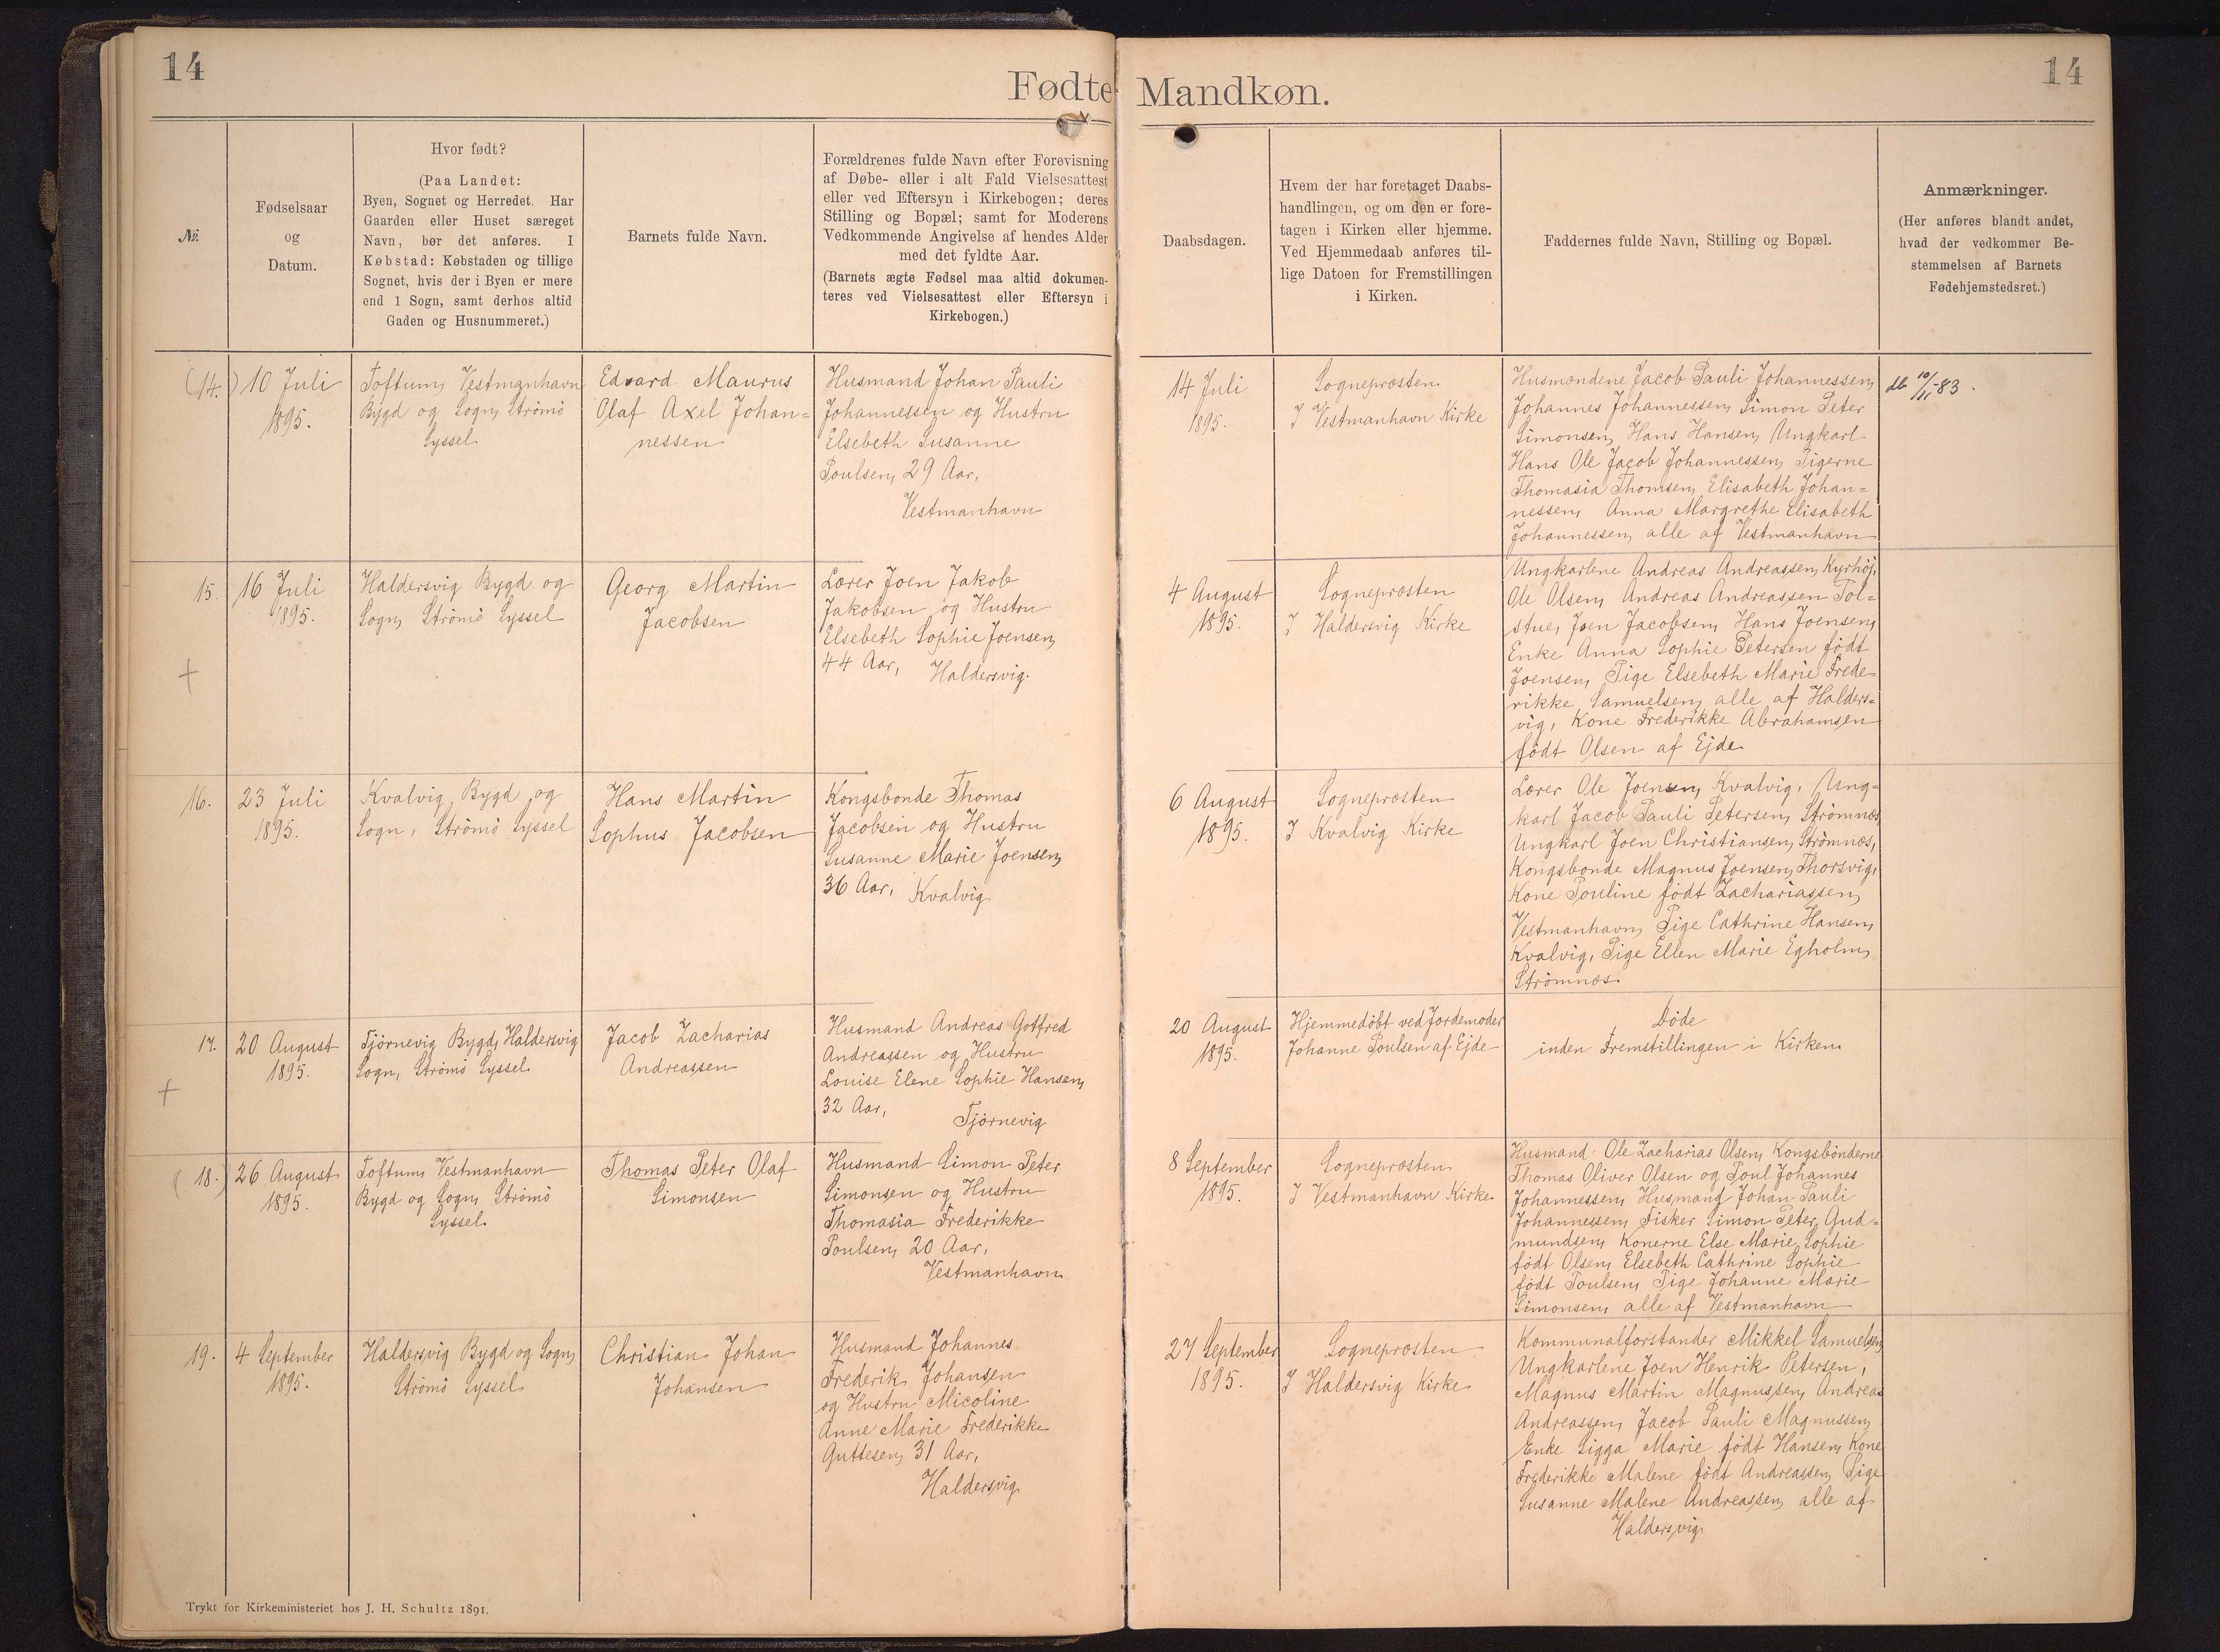 14
14
Fødte Mandkøn.
№.
Fødselsaar
og
Datum.
Hvor født?
(Paa Landet:
Byen, Sognet og Herredet. Har
Gaarden eller Huset særeget
Navn, bør det anføres. I
Købstad: Købstaden og tillige
Sognet, hvis der i Byen er mere
end 1 Sogn, samt derhos altid
Gaden og Husnummeret.)
Barnets fulde Navn.
Forældrenes fulde Navn efter Forevisning
af Døbe- eller i alt Fald Vielsesattest
eller ved Eftersyn i Kirkebogen; deres
Stilling og Bopæl; samt for Moderens
Vedkommende Angivelse af hendes Alder
med det fyldte Aar.
(Barnets ægte Fødsel maa altid dokumen-
teres ved Vielsesattest eller Eftersyn i
Kirkebogen.)
Daabsdagen.
Hvem der har foretaget Daabs-
handlingen, og om den er fore-
tagen i Kirken eller hjemme.
Ved Hjemmedaab anføres til-
lige Datoen for Fremstillingen
i Kirken.
Faddernes fulde Navn, Stilling og Bopæl.
Anmærkninger.
(Her anføres blandt andet,
hvad der vedkommer Be-
stemmelsen af Barnets
Fødehjemstedsret.)
(14.)
10 Juli
1895.
Toftum, Vestmanhavn
Bygd og Sogn, Strömö
Syssel
Edvard Maurus
Olaf Axel Johan=
nessen
Husmand Johan Pauli
Johannessen og Hustru
Elsebeth Susanne
Poulsen, 29 Aar,
Vestmanhavn
14 Juli
1895.
Sognepræsten
I Vestmanhavn Kirke
Husmændene Jacob Pauli Johannessen,
Johannes Johannessen, Simon Peter
Simonsen, Hans Hansen, Ungkarl
Hans Ole Jacob Johannessen, Pigerne
Thomasia Thomsen, Elisabeth Johan=
nessen, Anna Margrethe Elisabeth
Johannessen, alle af Vestmanhavn
db 10/11-83.
15.
16 Juli
1895.
Haldersvig Bygd og
Sogn, Strömö Syssel
Georg Martin
Jacobsen
Lærer Joen Jakob
Jakobsen og Hustru
Elsebeth Sophie Joensen,
44 Aar, Haldersvig.
4 August
1895.
Sognepræsten
I Haldersvig Kirke
Ungkarlene Andreas Andreassen, Kyrhöj,
Ole Olsen, Andreas Andreassen Tol=
stue, Joen Jacobsen, Hans Joensen,
Enke Anna Sophie Petersen födt
Joensen, Pige Elsebeth Marie Frede-
rikke Samuelsen, alle af Halders=
vig, Kone Frederikke Abrahamsen
födt Olsen af Ejde
16.
23 Juli
1895.
Kvalvig, Bygd og
Sogn, Strömö Syssel
Hans Martin
Sophus Jacobsen
Kongsbonde Thomas
Jacobsen og Hustru
Susanne Marie Joensen,
36 Aar, Kvalvig
6 August
1895.
Sognepræsten
I Kvalvig Kirke
Lærer Ole Joensen, Kvalvig, Ung=
karl Jacob Pauli Petersen, Strömnæs,
Ungkarl Joen Christiansen, Strömnæs,
Kongsbonde Magnus Joensen, Thorsvig,
Kone Pouline födt Zachariassen,
Vestmanhavn, Pige Cathrine Hansen,
Kvalvig, Pige Ellen Marie Egholm,
Strömnæs
17.
20 August
1895.
Tjörnevig Bygd, Haldersvig
Sogn, Strömö Syssel
Jacob Zacharias
Andreassen
Husmand Andreas Gotfred
Andreassen og Hustru
Louise Elene Sophie Hansen,
32 Aar,
Tjörnevig
20 August
1895.
Hjemmedöbt ved Jordemoder
Johanne Poulsen af Ejde
Döde
inden Fremstillingen i Kirken
(18.)
26 August
1895.
Toftum, Vestmanhavn
Bygd og Sogn, Strömö
Syssel
Thomas Peter Olaf
Simonsen
Husmand Simon Peter
Simonsen og Hustru
Thomasia Frederikke
Poulsen, 20 Aar,
Vestmanhavn
8 September
1895.
Sognepræsten
I Vestmanhavn Kirke
Husmand Ole Zacharias Olsen, Kongsbönderne
Thomas Oliver Olsen og Poul Johannes
Johannessen, Husmand Johan Pauli
Johannessen, Fisker Simon Peter Gud=
mundsen, Konerne Else Marie Sophie
födt Olsen, Elsebeth Cathrine Sophie
födt Poulsen, Pige Johanne Marie
Simonsen, alle af Vestmanhavn
19.
4 September
1895.
Haldersvig Bygd og Sogn,
Strömö Syssel
Christian Johan
Johansen
Husmand Johannes
Frederik Johansen
og Hustru Micoline
Anne Marie Frederikke
Guttesen, 31 Aar,
Haldersvig
27 September
1895.
Sognepræsten
I Haldersvig Kirke
Kommunalforstander Mikkel Samuelsen,
Ungkarlene Joen Henrik Petersen,
Magnus Martin Magnussen, Andreas
Andreassen, Jacob Pauli Magnussen,
Enke Sigga Marie födt Hansen, Kone
Frederikke Malene födt Andreassen, Pige
Susanne Malene Andreassen, alle af
Haldersvig
Trykt for Kirkeministeriet hos J. H. Schultz 1891.